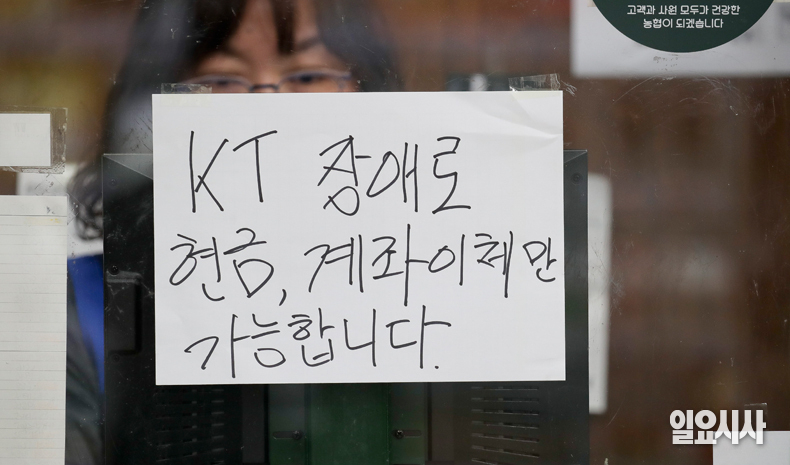 고객과 사원 모두가 건강한
농협이 되겠습니다
KT 장애로
현금, 계좌이체만
가능합니다.
일요시사